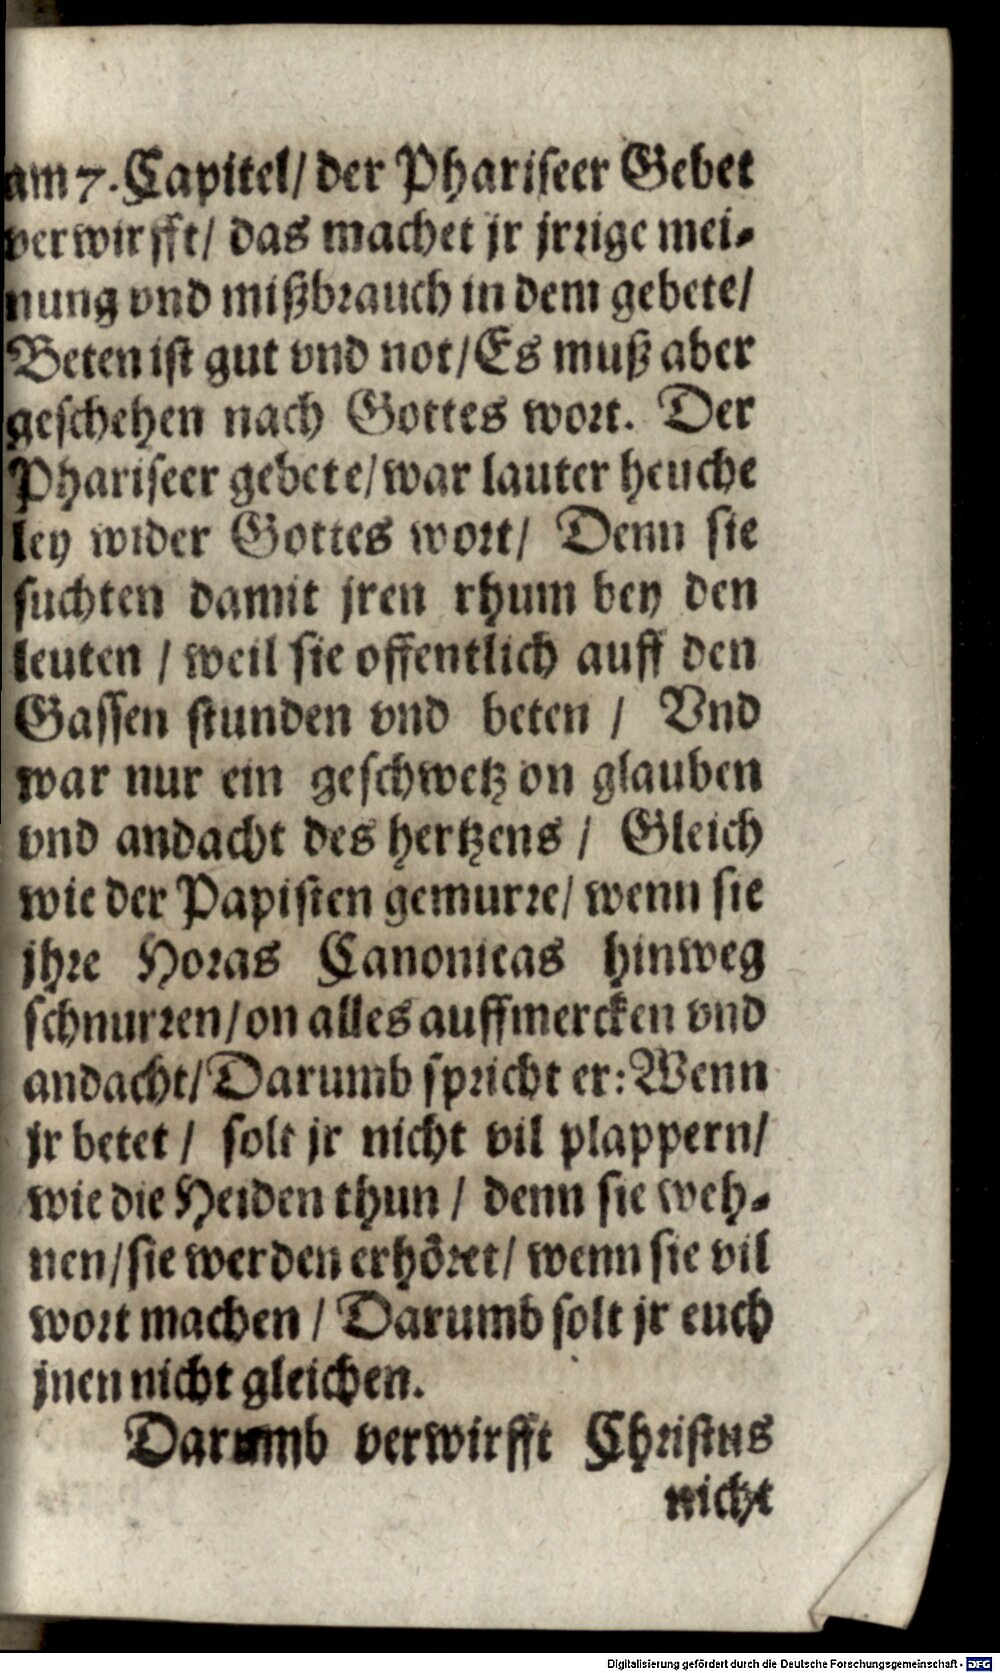 am 7. Capitel/ der Phariseer Gebet
verwirfft/ das machet jr jrrige mei-
nung vnd mißbrauch in dem gebete/
Beten ist gut vnd not/ Es muß aber
geschehen nach Gottes wort. Der
Phariseer gebete/ war lauter heuche
ley wider Gottes wort/ Denn sie
suchten damit jren rhum bey den
leuten / weil sie offentlich auff den
Gassen stunden vnd beten / Vnd
war nur ein geschwetz on glauben
vnd andacht des hertzens / Gleich
wie der Papisten gemurre/ wenn sie
jhre Horas Canonicas hinweg
schnurren/ on alles auffmercken vnd
andacht/ Darumb spricht er: Wenn
jr betet / solt jr nicht vil plappern/
wie die Heiden thun / denn sie weh-
nen/ sie werden erhöret/ wenn sie vil
wort machen / Darumb solt jr euch
jnen nicht gleichen.
Darumb verwirfft Christus
nicht
Digitalisierung gefördert durch die Deutsche Forschungsgemeinschaft - DFG